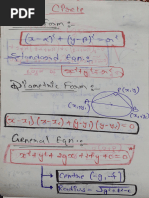 Circle
Form:-
(x-α)²+(y-β)²=r²
Standard Eqn:-
x²+y²=a²
Diametric Form:-
P(x,y)
(x-x₁)(x-x₂)+(y-y₁)(y-y₂)=0
General Eqn:-
x²+y²+2gx+2fy+c=0
Centre = (-g,-f)
Radius =